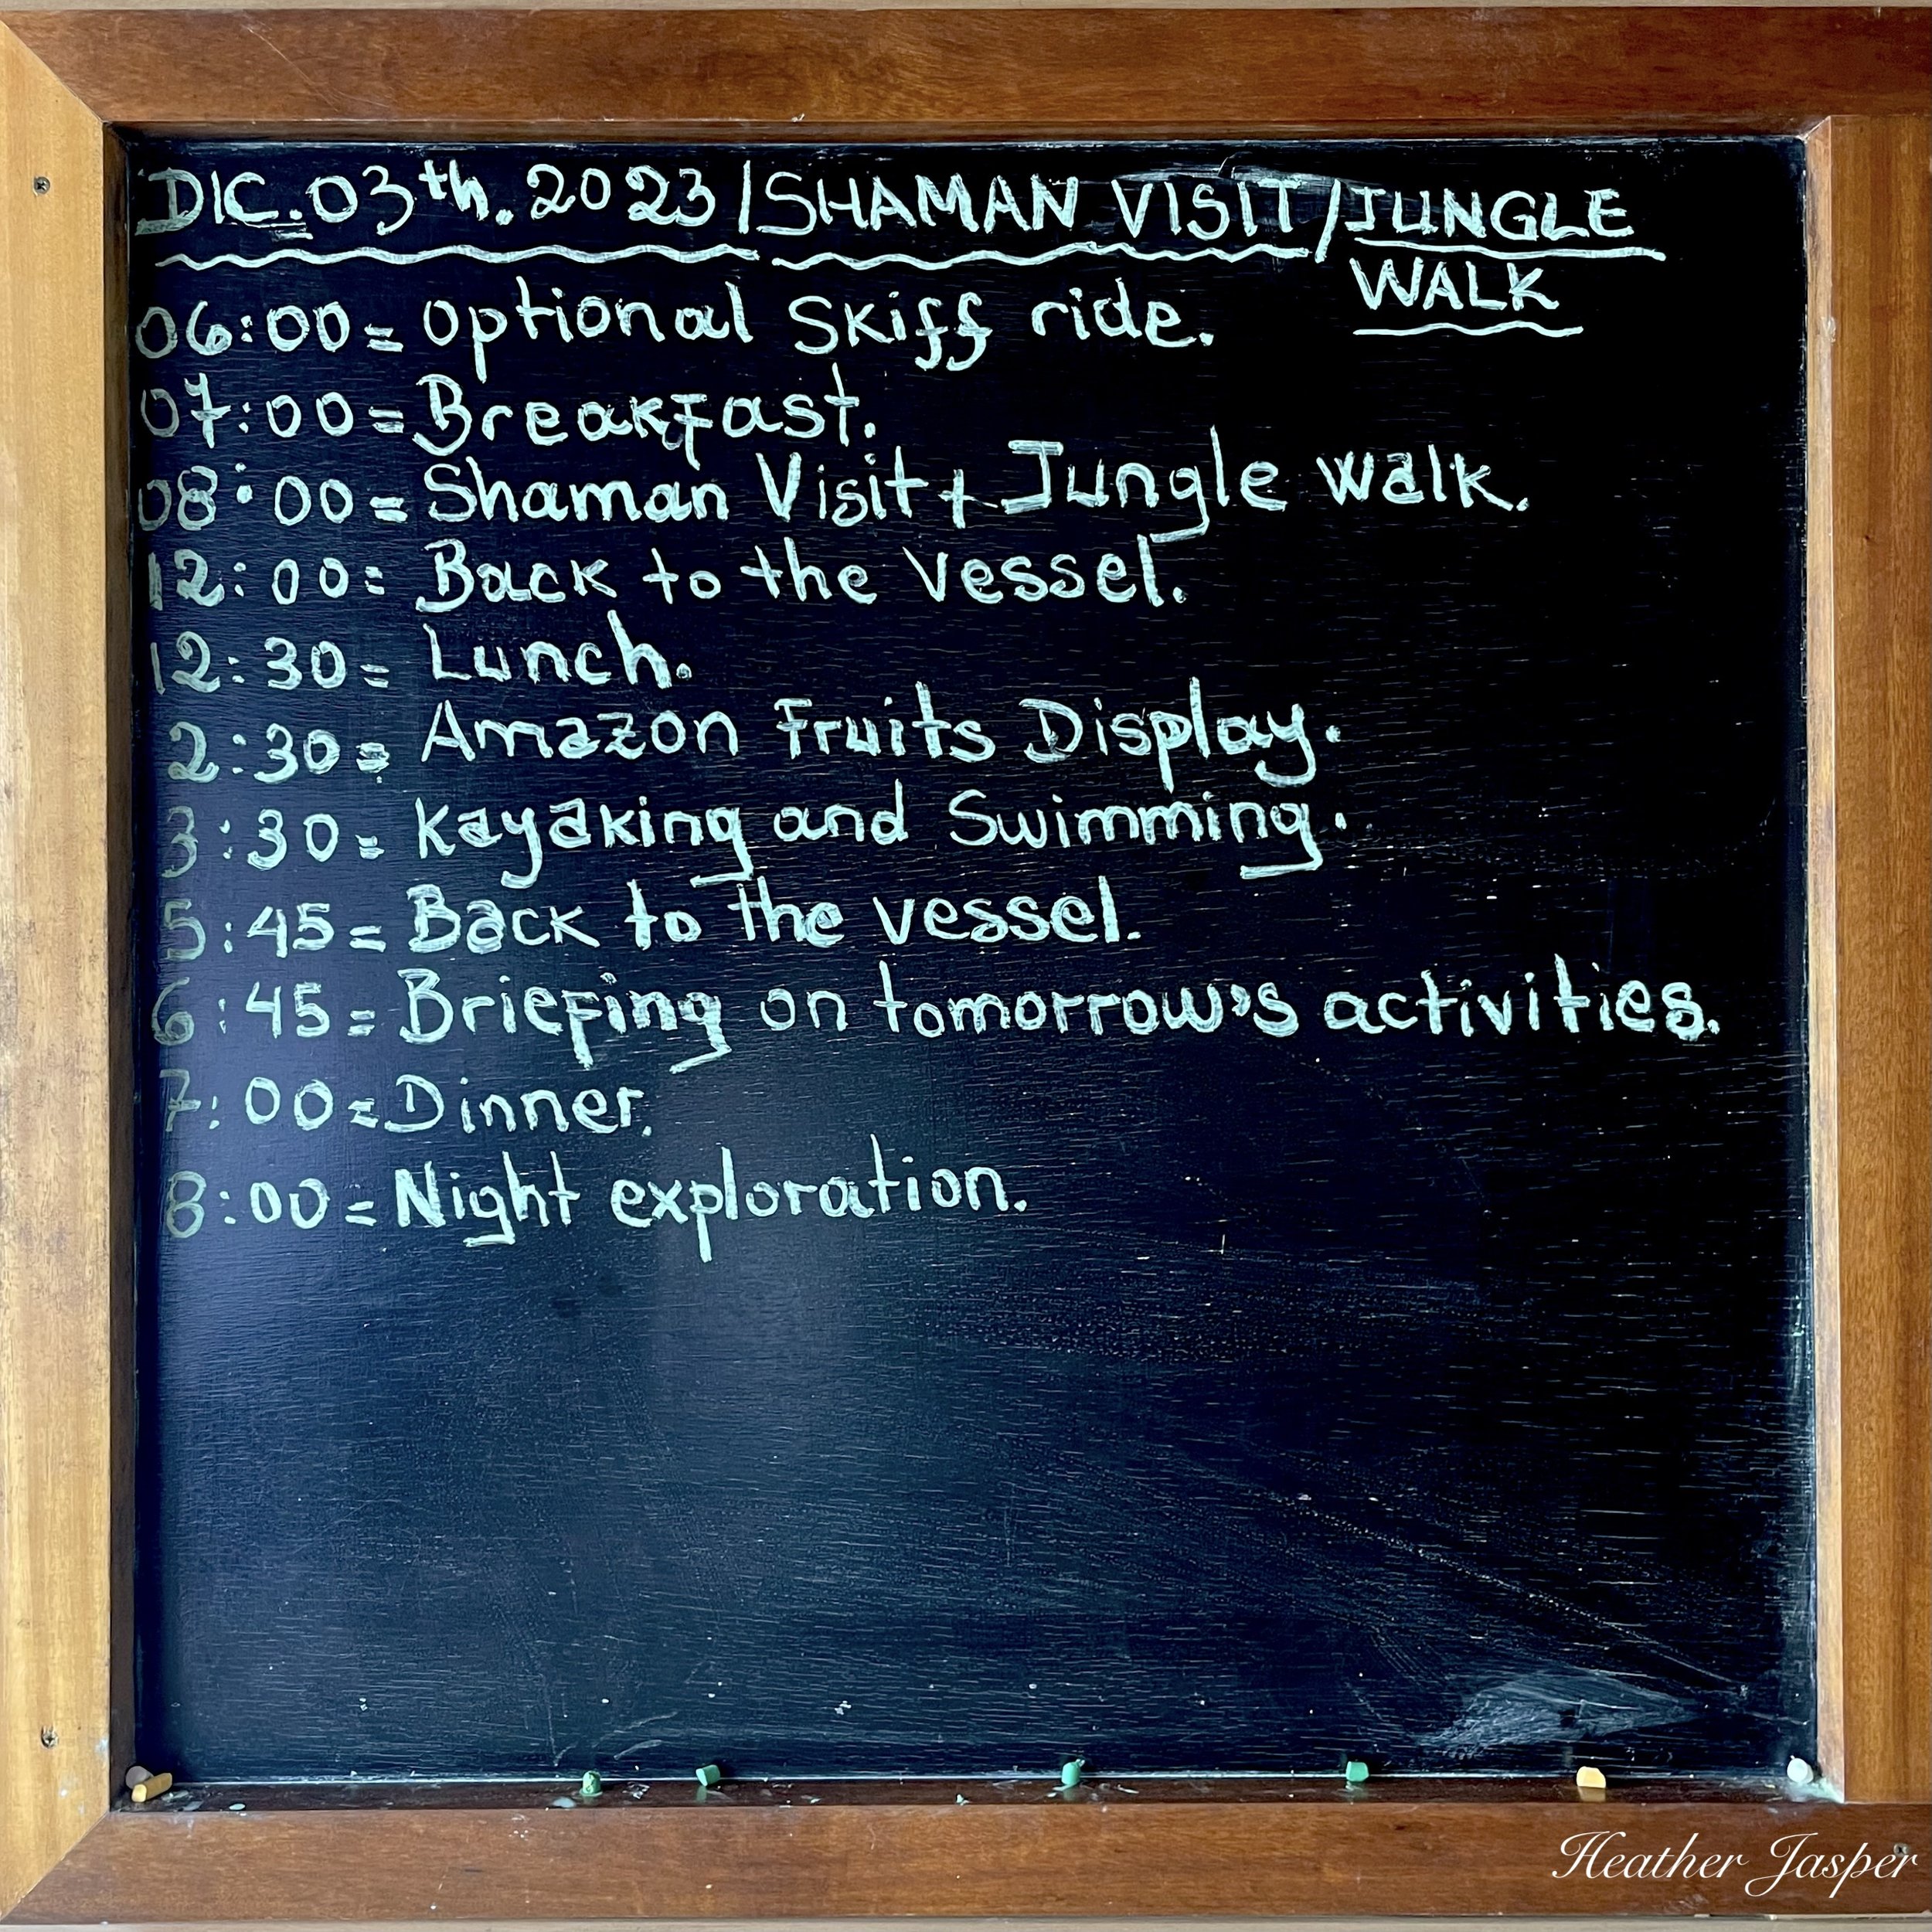 DIC. 03th. 2023 / SHAMAN VISIT / JUNGLE
WALK
06:00 = Optional Skiff ride.
07:00 = Breakfast.
08:00 = Shaman Visit + Jungle walk.
12:00 = Back to the Vessel.
12:30 = Lunch.
2:30 = Amazon Fruits Display.
3:30 = Kayaking and Swimming.
5:45 = Back to the vessel.
6:45 = Briefing on tomorrow's activities.
7:00 = Dinner.
8:00 = Night exploration.
Heather Jasper